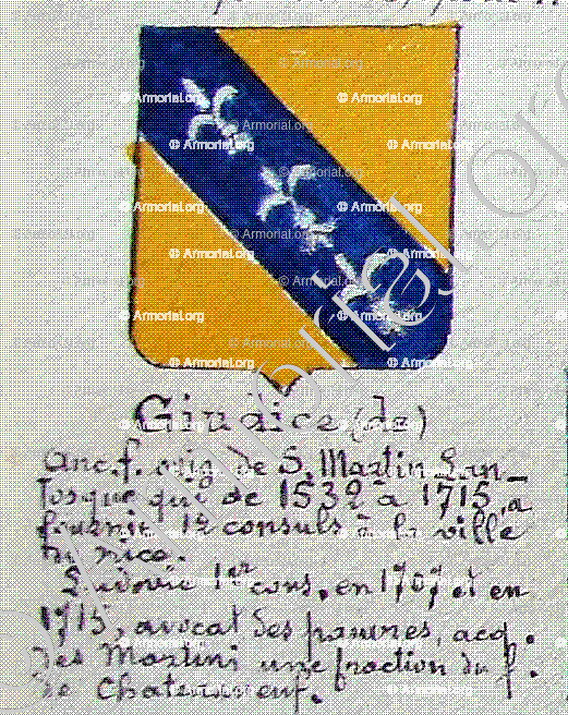 Giudice (de)
Anc. f. orig. de S. Martin Lan-
tosque qui de 1532 à 1715, a
fourni 12 consuls à la ville
de Nice.
Ludovic 1er cons. en 1707 et en
1715, avocat des pauvres, acq.
des Martini une fraction du f.
de Chateauneuf.
© Armorial.org